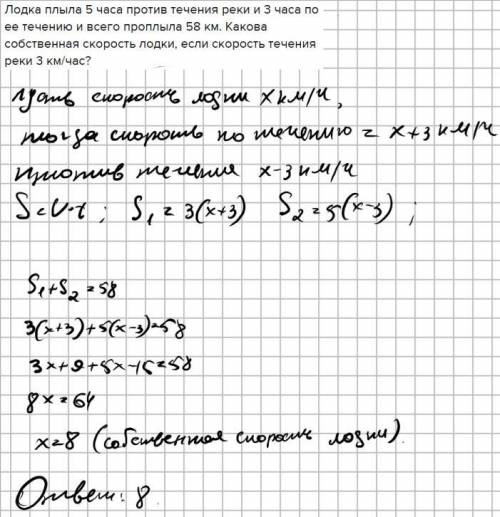 Лодка плыла 5 часа против течения реки и 3 часа по
ее течению и всего проплыла 58 км. Какова
собственная скорость лодки, если скорость течения
реки 3 км/час?
пусть скорость лодки x км/ч,
тогда скорость по течению = x+3 км/ч
против течения x-3 км/ч
S=V·t ; S₁=3(x+3) S₂=5(x-3) ;
S₁+S₂=58
3(x+3)+5(x-3)=58
3x+9+5x-15=58
8x=64
x=8 (собственная скорость лодки).
Ответ: 8